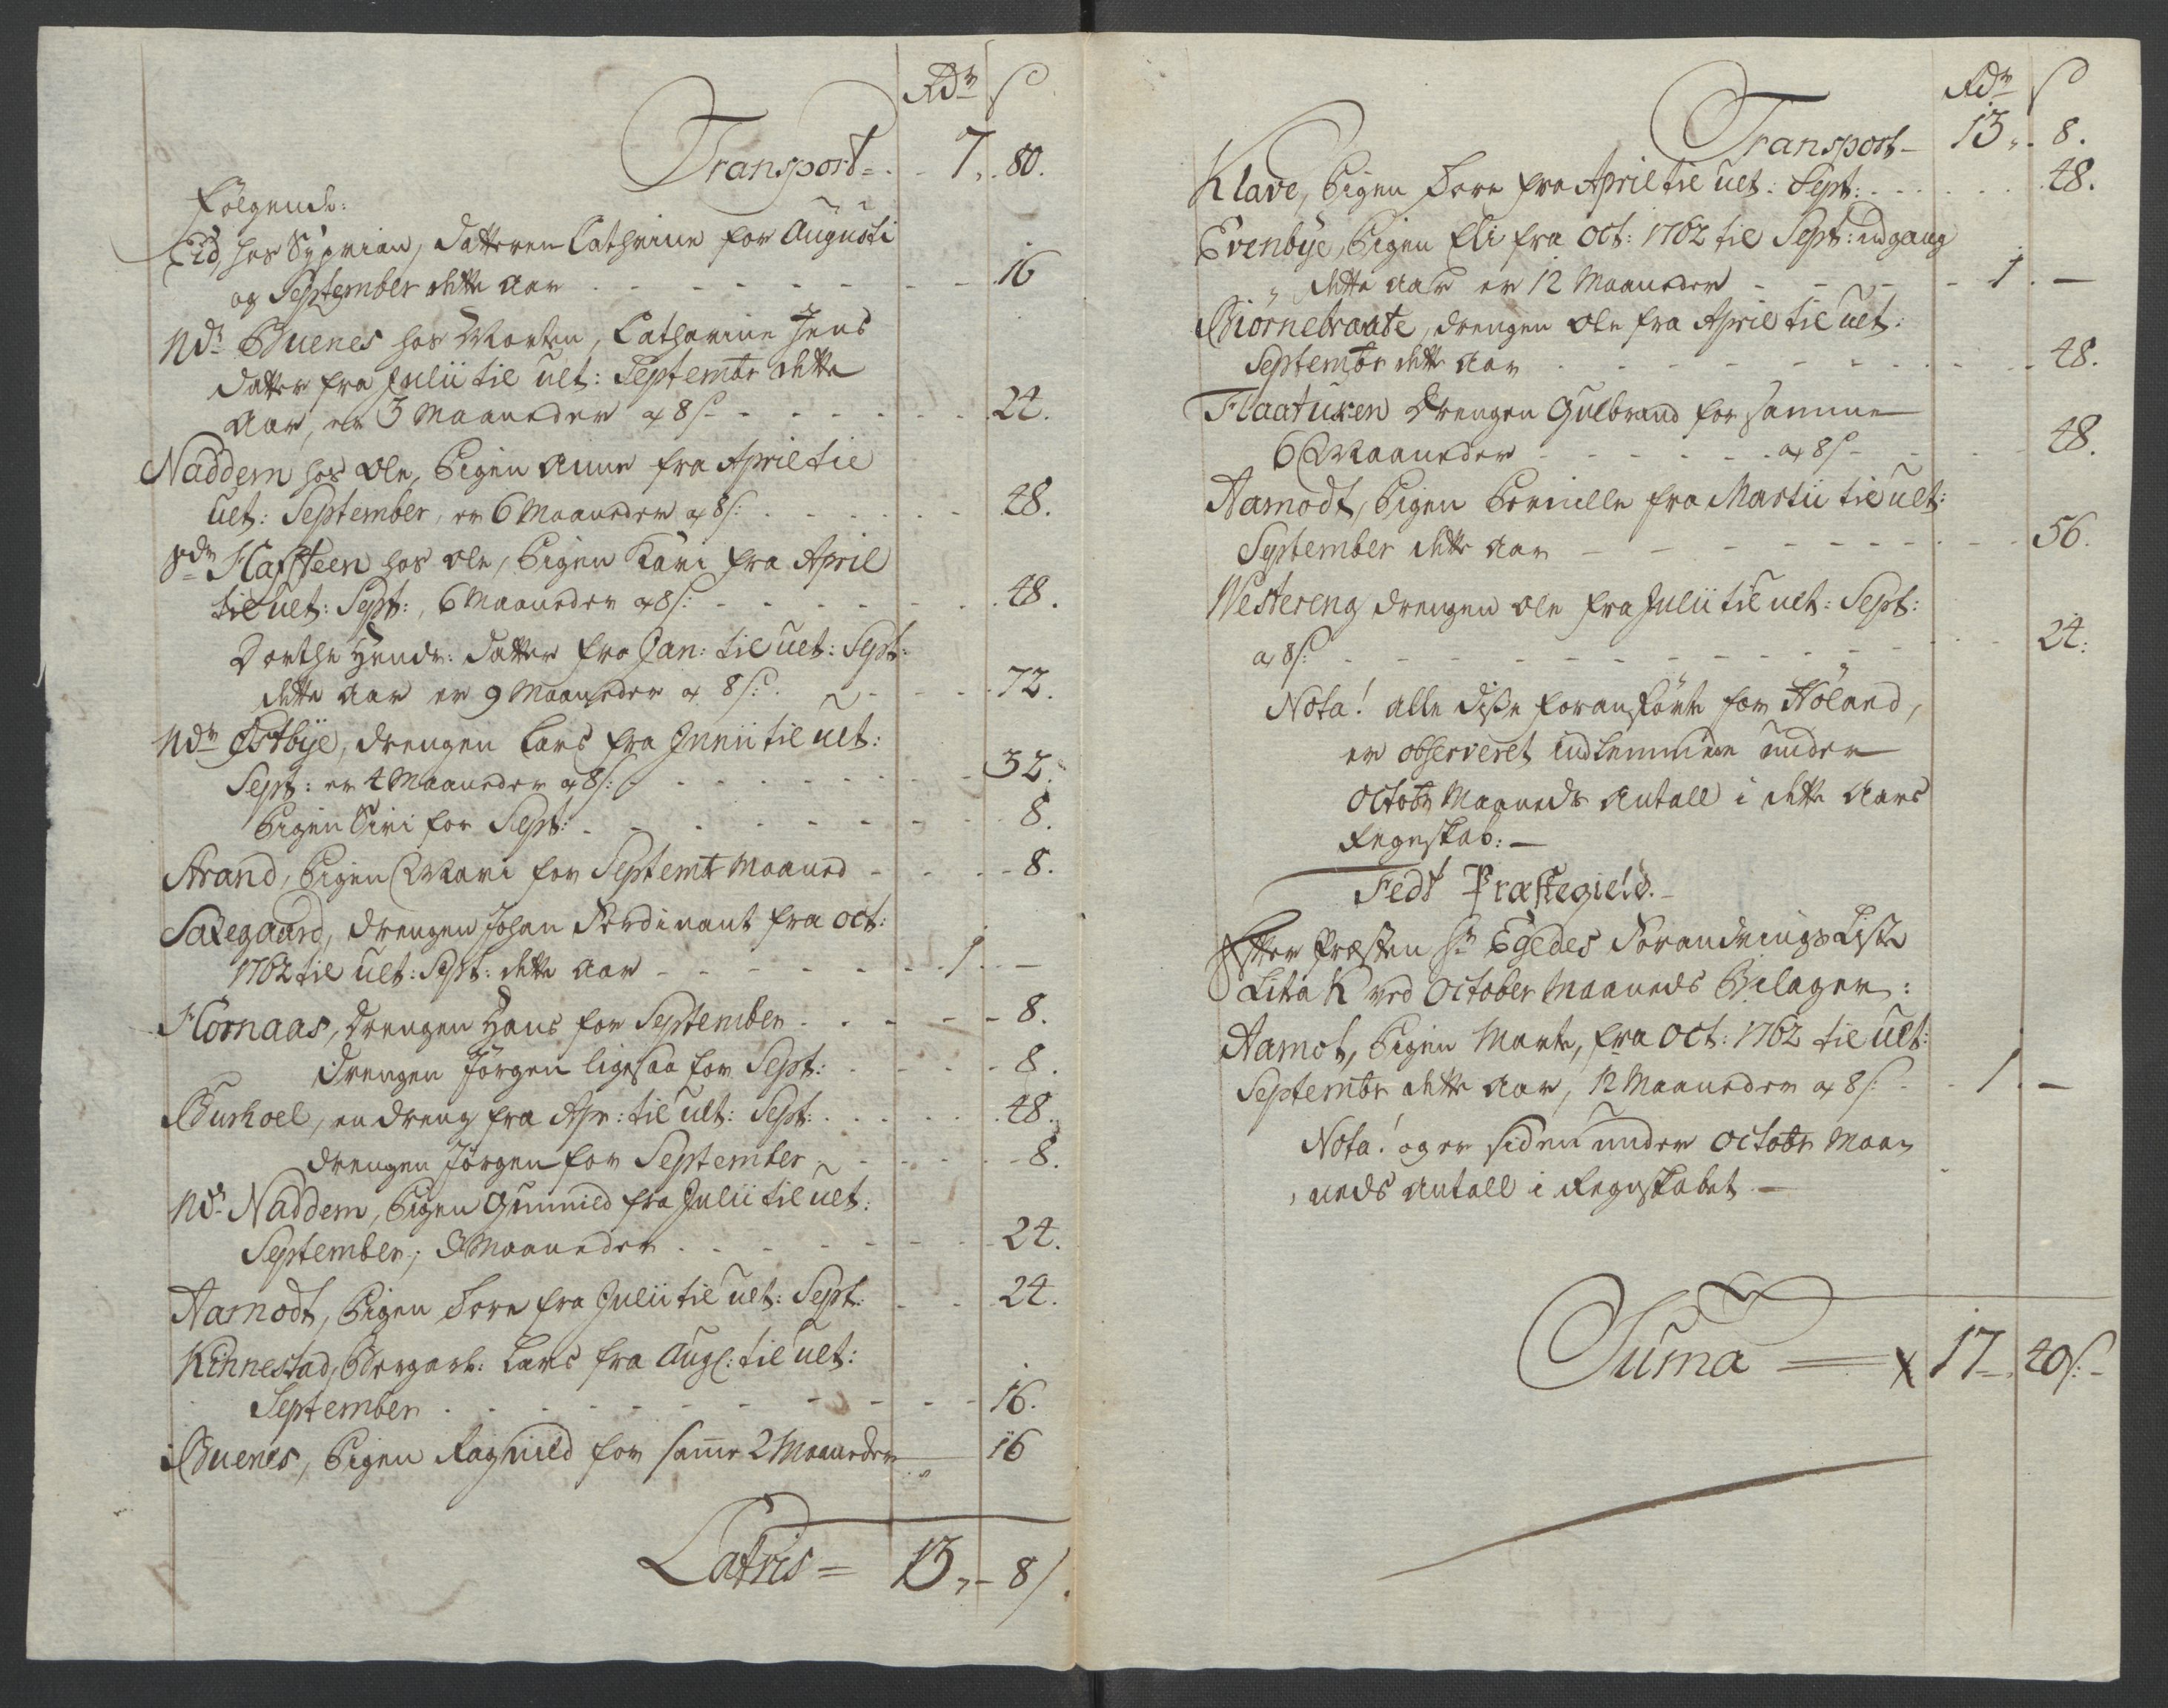 Rdr ß
Transport = 7. 80.
følgende:
Eid, hos Syprian, datteren Cathrine for Augusti
og September dette Aar 16
Ndr Buenes hos Morten, Catharine Jens
datter fra Julii til ult: Septembr dette
Aar, er 3 Maaneder a 8 ß 24.
Naddem hos Ole, Pigen Anne fra April til
ult: September, er 6 Maaneder a 8 ß: 48.
Sdr Hafsteen hos Ole, Pigen Kari fra April
til ult: Sept:, 6 Maaneder a 8 ß: 48.
Dorthe Hendr: datter fra Jan: til ult: Sept:
dette Aar er 9 Maaneder a 8 ß: 72.
Ndr Østbÿe, drengen Lars fra Junii til ult:
Sept: er 4 Maaneder a 8 ß: 32.
Pigen Siri for Sept: 8.
Strand, Pigen Mari for Septembr Maaned 8.
Sategaard, drengen Johan Ferdinant fra Oct:
1762 til ult: Sept: dette Aar 1. —
Hornaas, drengen Hans for September 8.
drengen Jørgen ligesaa for Sept: 8.
Burhoel, en dreng fra Apr: til ult: Sept: 48.
drengen Jørgen for September 8.
Ndr Naddem, Pigen Gunnild fra Julii til ult:
September, 3 Maaneder 24.
Aamodt, Pigen Dore fra Julii til ult: Sept: 24.
Kinnestad, Lars fra Aug: til ult:
September 16.
Buenes, Pigen Ragnild for samme 2 Maaneder 16
Latris = 13. 8 ß.
Rdr ß
Transport 13. 8.
Klave, Pigen Dore fra April til ult: Sept: 48.
Evenbÿe, Pigen Eli fra Oct: 1762 til Sept: udgang
dette Aar er 12 Maaneder 1. —
Biørnebraate, drengen Ole fra April til ult:
Septembr dette Aar 48.
Flaatusen drengen Gulbrand for samme
6 Maaneder a 8 ß 48.
Aamodt, Pigen Pernille fra Martii til ult:
September dette Aar 56.
Westereng drengen Ole fra Julii til ult: Sept:
a 8 ß: 24:
Nota! alle disse foranførte for Høland,
er observeret indlemmede under
Octobr Maaneds Antall i dette Aars
Regnskab: —
Fedt Præstegield.
Efter Præsten Hr Egedes Forandrings Liste
Litra K ved October Maaneds Bilager:
Aamot, Pigen Marte, fra Oct: 1762 til ult:
Septembr dette Aar, 12 Maaneder a 8 ß: 1. —
Nota! og er siden under Octobr Maa-
neds Antall i Regnskabet. —
Suma = 17. 40 ß: